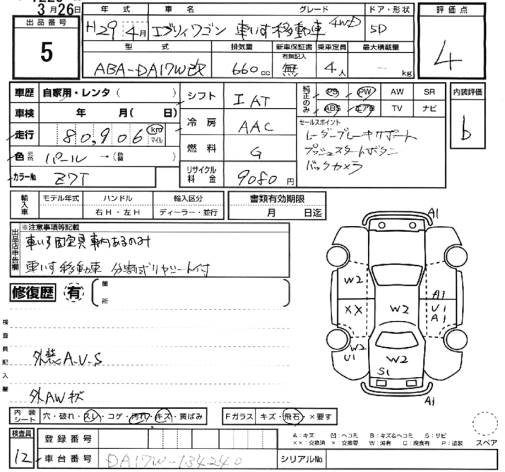 3月26日
出品番号
5
年式 車名 グレード ドア・形状 評価点
H29 4月 エブリィワゴン 車いす移動車 4WD 5D
4
型式 排気量 新車保証書 乗車定員 最大積載量
有無記入
ABA-DA17W改 660cc 無 4人 kg
車歴 自家用・レンタ( )
車検 年 月( 日)
走行 80,906 km マイル
色 パール →( )
カラーNo Z7T
シフト IAT
冷房 AAC
燃料 G
リサイクル料金 9080円
純正のみ PW AW SR
ABS TV ナビ
内装評価
b
セールスポイント
レーダーブレーキサポート
プッシュスタートボタン
バックカメラ
輸入車 モデル年式 ハンドル 輸入区分
右H・左H ディーラー・並行
書類有効期限
月 日迄
※注意事項等記載
車いす固定具車内あるのみ
車いす移動車 分割式リヤシート付
修復歴 有 箇所
検査員記入欄
外装A.V.S
外AWキズ
A1
W2 A1
XX W2 V1
A1
W2 W2
U1
S1
A1
内装シート 穴・破れ・スレ・コゲ・汚れ・キズ・黄ばみ
Fガラス キズ・飛石・×要す
スペア
A:キズ M:ヘコミ B:キズ&ヘコミ S:サビ
検査員
12
登録番号
車台番号 DA17W-134240
シリアルNo.